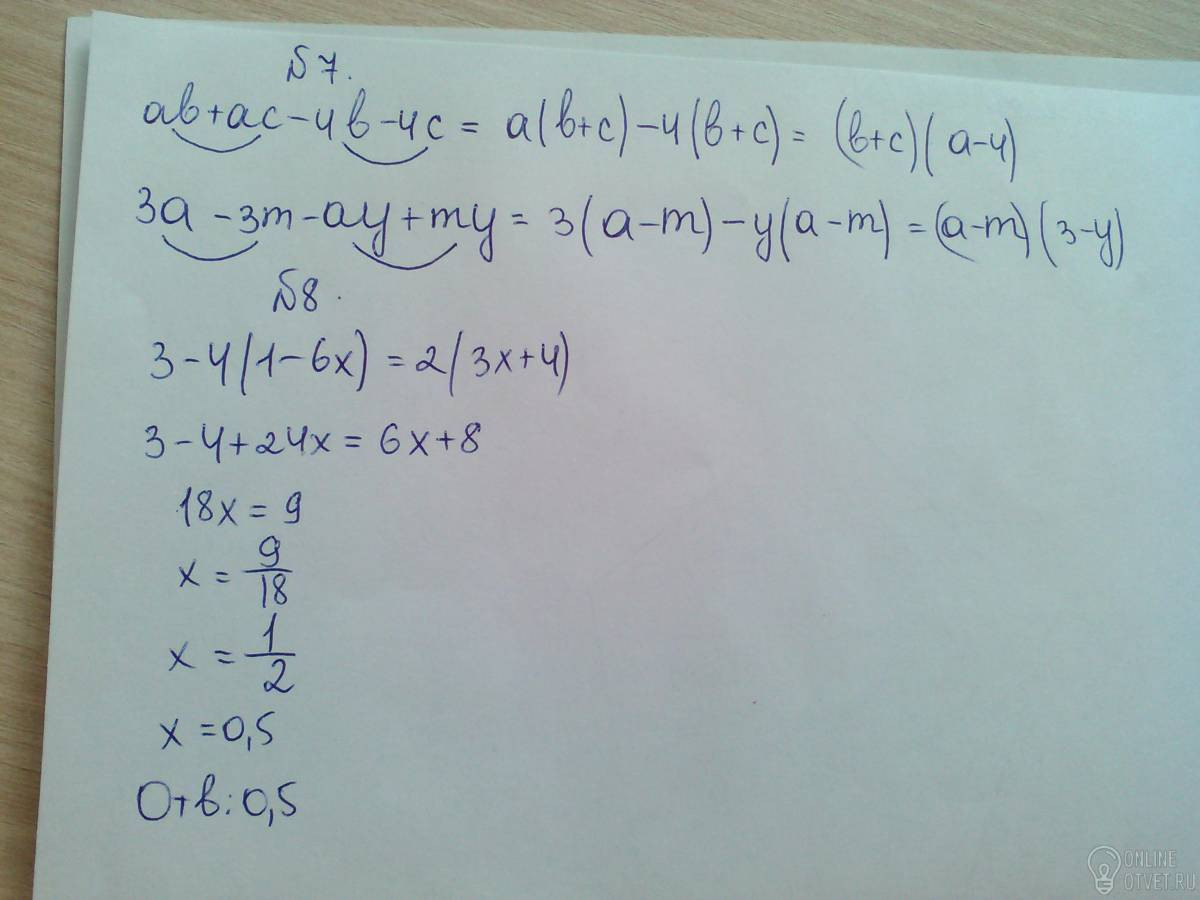 №7.
ав+ас-4в-4с = а(в+с)-4(в+с) = (в+с)(а-4)
3а-3m-ay+my = 3(а-m)-y(а-m) = (а-m)(3-y)
№8.
3-4(1-6x) = 2(3x+4)
3-4+24x = 6x+8
18x = 9
x = 9/18
x = 1/2
x = 0,5
Отв: 0,5
ONLINE
OTVET.RU